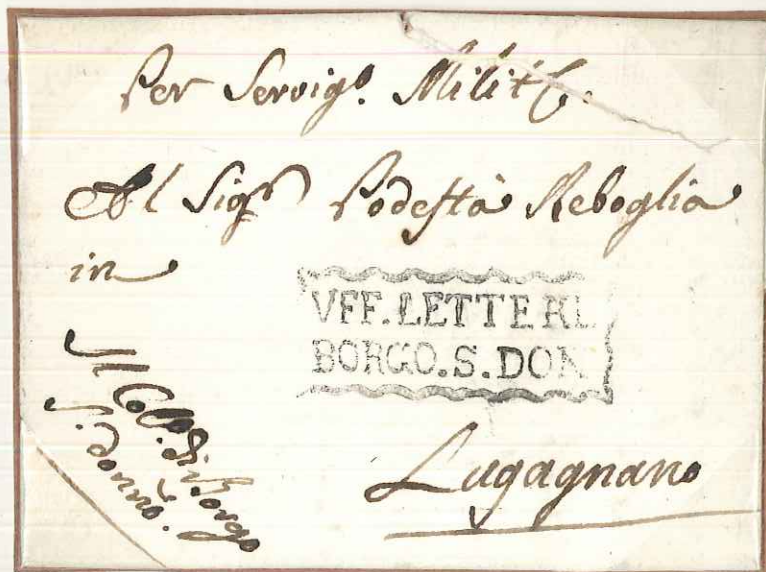 Per Servig.º Milit.e
Al Sig.r Podestà Reboglia
in
VFF.LETTERE
BORGO.S.DON
Il Coll.º di Borgo
S. Donno.
Lugagnano